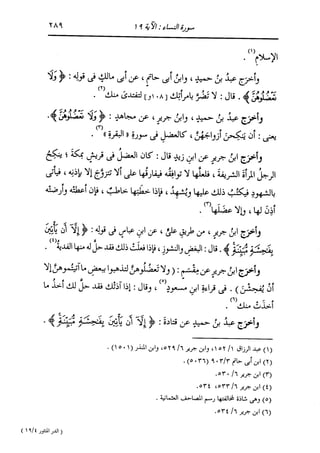 سورة النساء : الآية ١٩
٢٨٩
الإسلام(١) .
وأخرج عبدُ بنُ حميدٍ ، وابنُ أبى حاتمٍ ، عن أبى مالكٍ فى قولِه : ﴿ وَلَا
تَعْضُلُوهُنَّ ﴾ . قال : لا تضُرَّ بامرأتِك [١٠٨و] لتفتدىَ منك(٢) .
وأخرج عبدُ بنُ حميدٍ ، وابنُ جريرٍ ، عن مجاهدٍ : ﴿ وَلَا تَعْضُلُوهُنَّ ﴾ .
يعنى : أن يَنكِحْنَ أزواجَهُنَّ ، كالعضلِ فى سورةِ « البقرة »(٣) .
وأخرج ابنُ جريرٍ عن ابنِ زيدٍ قال : كان العضلُ فى قريشٍ بمكةَ ؛ يَنكِحُ
الرجلُ المرأةَ الشريفةَ ، فلعلَّها لا توافقُه فيفارقُها على ألا تتزوَّجَ إلا بإذنِه ، فيأتى
بالشهودِ فيكتُبُ ذلك عليها ويُشهِدُ ، فإذا خطَبها خاطبٌ ، فإن أعطَته وأرضَته
أذِن لها ، وإلا عضَلها(٣) .
وأخرج ابنُ جريرٍ ، من طريقِ علىٍّ ، عن ابنِ عباسٍ فى قولِه : ﴿ إِلَّا أَن يَأْتِينَ
بِفَاحِشَةٍ مُّبَيِّنَةٍ ﴾ . قال : البغضُ والنشوزُ ، فإذا فعلَتْ ذلك فقد حلَّ له منها الفديةُ(٤) .
وأخرج ابنُ جريرٍ عن مِقْسمٍ : ( ولا تعضُلوهنَّ لتذهبوا ببعضِ ما آتيتموهنَّ إلا
أن يُفحِشْنَ ) . فى قراءةِ ابنِ مسعودٍ(٥) ، وقال : إذا آذتك فقد حلَّ لك أخذُ ما
أخذَتْ منك(٦) .
وأخرج عبدُ بنُ حميدٍ عن قتادةَ : ﴿ إِلَّا أَن يَأْتِينَ بِفَاحِشَةٍ مُّبَيِّنَةٍ ﴾ .
(١) عبد الرزاق ١/ ١٥٢، وابن جرير ٦/ ٥٢٩، وابن المنذر (١٥٠١) .
(٢) ابن أبى حاتم ٩٠٣/٣ (٥٠٣٦) .
(٣) ابن جرير ٦/ ٥٣٠.
(٤) ابن جرير ٦/ ٥٣٣، ٥٣٤.
(٥) وهى شاذة لمخالفتها رسم المصاحف العثمانية .
(٦) ابن جرير ٦/ ٥٣٤.
( الدر المنثور ١٩/٤ )